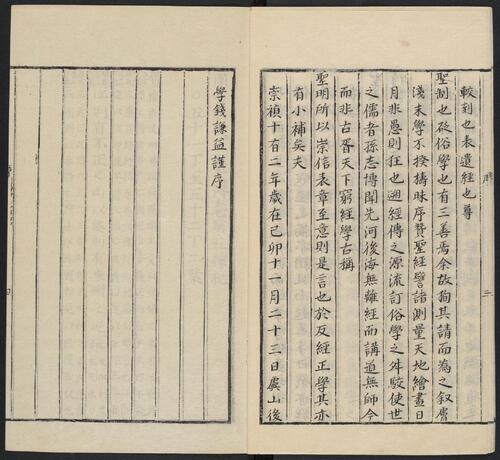 較刻也表遺經也尊
聖制也砭俗學也有三善焉余故狥其請而為之叙膚
淺末學不揆擣昧序贊聖經譬諸測量天地繪畫日
月非愚則狂也迺經傳之源流訂俗學之舛駮使世
之儒者孫志博聞先河後海無離經而講道無師今
而非古胥天下窮經學古稱
聖明所以崇信表章至意則是言也於反經正學其亦
有小補矣夫
崇禎十有二年歲在己卯十一月二十三日虞山後
學錢謙益謹序
序
三
四